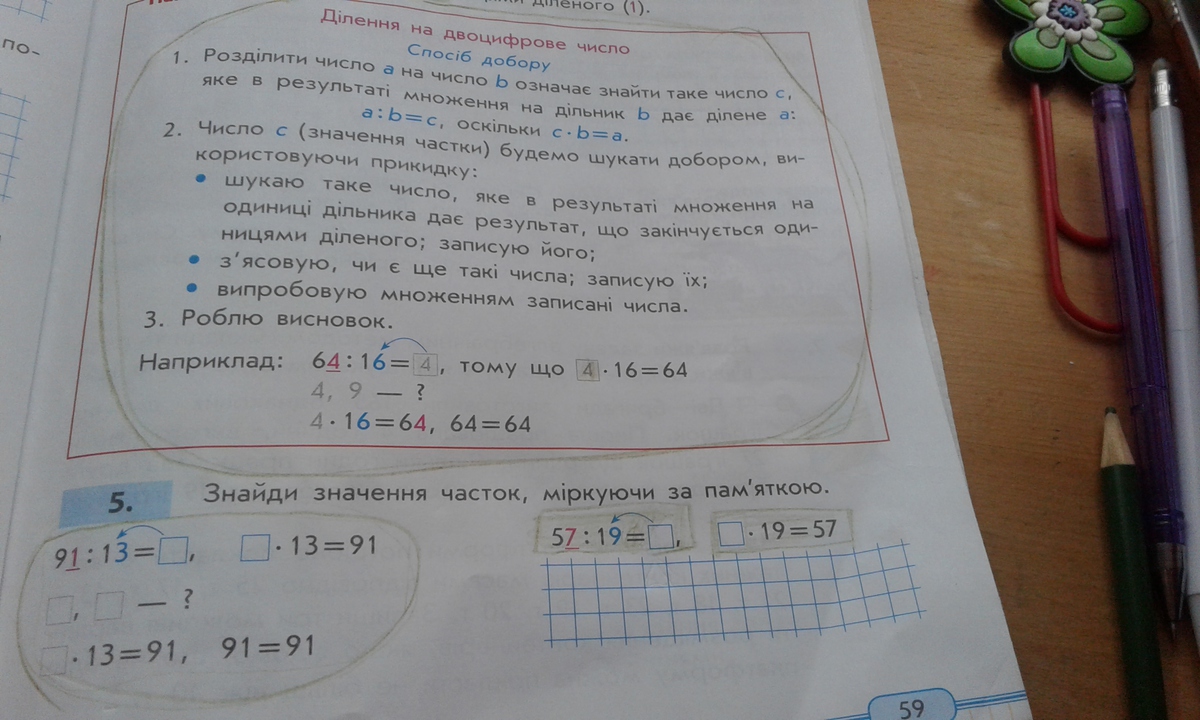 діленого (1).
по-
Ділення на двоцифрове число
Спосіб добору
1. Розділити число a на число b означає знайти таке число c,
яке в результаті множення на дільник b дає ділене a:
a : b = c, оскільки c · b = a.
2. Число c (значення частки) будемо шукати добором, ви-
користовуючи прикидку:
• шукаю таке число, яке в результаті множення на
одиниці дільника дає результат, що закінчується оди-
ницями діленого; записую його;
• з’ясовую, чи є ще такі числа; записую їх;
• випробовую множенням записані числа.
3. Роблю висновок.
Наприклад: 64 : 16 = 4, тому що 4 · 16 = 64
4, 9 — ?
4 · 16 = 64, 64 = 64
5. Знайди значення часток, міркуючи за пам’яткою.
91 : 13 = □, □ · 13 = 91
□, □ — ?
□ · 13 = 91, 91 = 91
57 : 19 = □, □ · 19 = 57
59